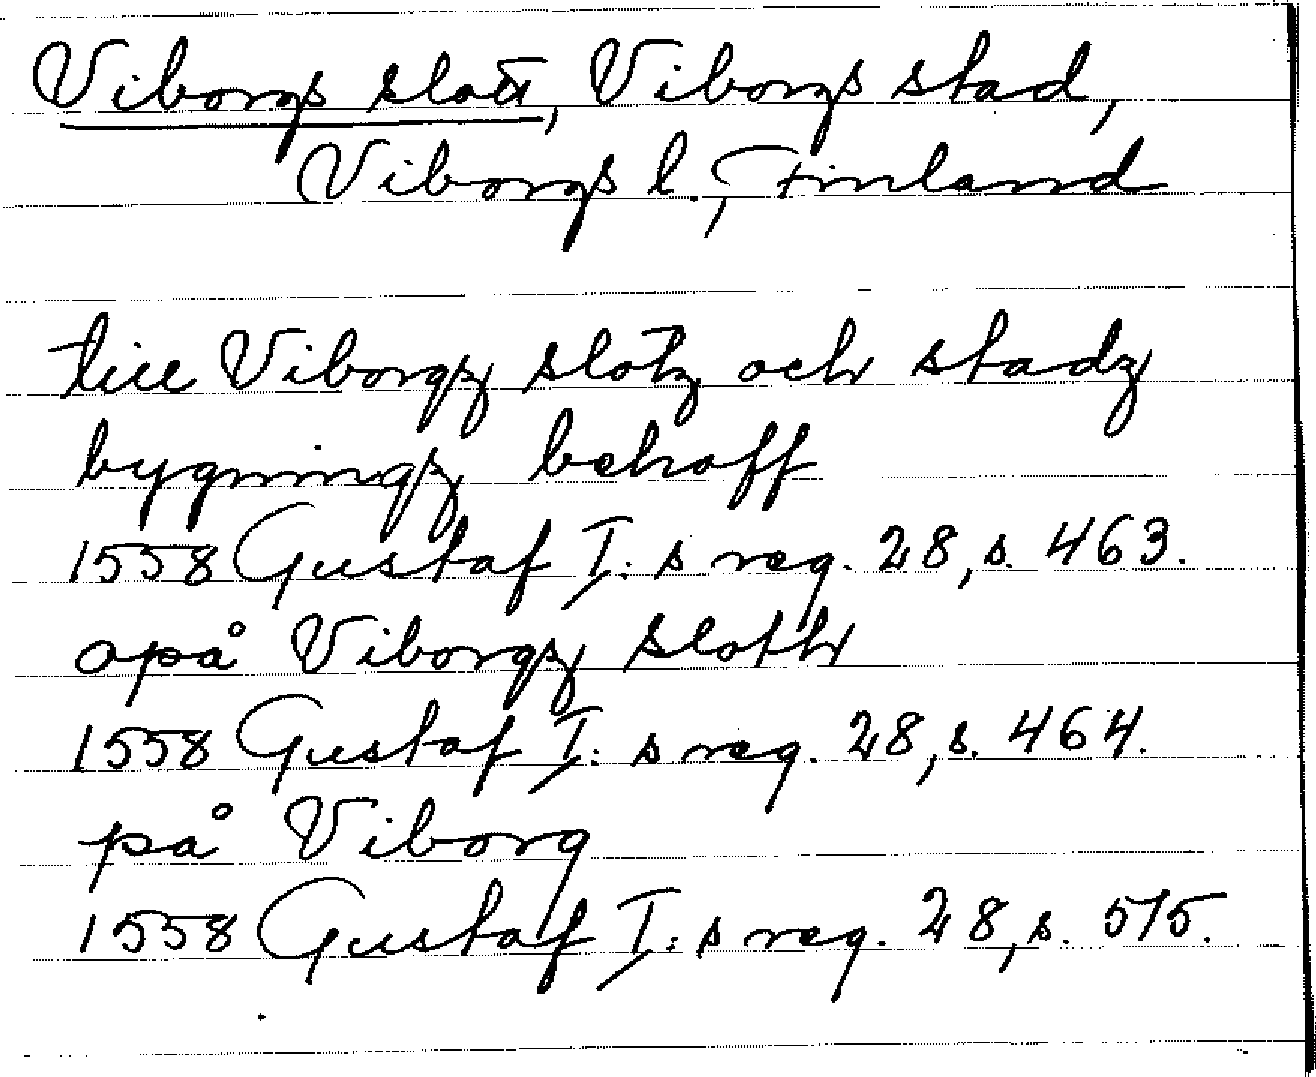 Viborgs slott, Viborgs stad,
Viborgs l, Finland
till Viborgz slotz och stadz
bygningz behoff
1558 Gustaf I:s reg. 28, s. 463.
opå Viborgz sloth
1558 Gustaf I:s reg. 28, s. 464.
på Viborg
1558 Gustaf I:s reg. 28, s. 515.